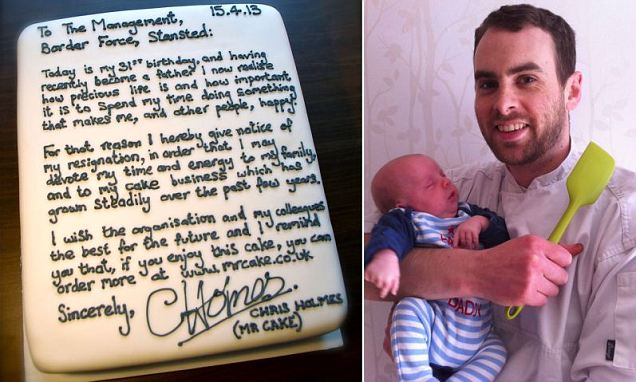 15.4.13
To The Management,
Border Force, Stansted:
Today is my 31st birthday, and having
recently become a father I now realise
how precious life is and how important
it is to spend my time doing something
that makes me, and other people, happy.
For that reason I hereby give notice of
my resignation, in order that I may
devote my time and energy to my family,
and to my cake business which has
grown steadily over the past few years.
I wish the organisation and my colleagues
the best for the future and I remind
you that, if you enjoy this cake, you can
order more at www.mrcake.co.uk
Sincerely,
CHolmes
CHRIS HOLMES
(MR CAKE)
DADDY